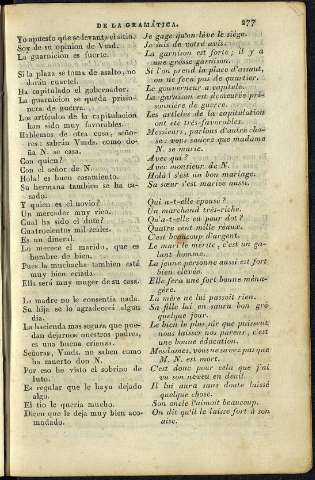 DE LA GRAMÁTICA. 277
Yo apuesto que se levanta el sitio.
Soy de su opinion de Vmd.
La guarnicion es fuerte.
Si la plaza se toma de asalto, no
darán cuartel.
Ha capitulado el gobernador.
La guarnicion se queda prisio-
nera de guerra.
Los artículos de la capitulacion
han sido muy favorables.
Hablemos de otra cosa, seño-
res: sabrán Vmds. como do-
ña N. se casa.
Con quien?
Con el señor de N.
Hola! es buen casamiento.
Su hermana tambien se ha ca-
sado.
Y quien es el novio?
Un mercader muy rico.
Cual ha sido el dote?
Cuatrocientos mil reales.
Es un dineral.
Lo merece el marido, que es
hombre de bien.
Pues la muchacha tambien está
muy bien criada.
Ella será muy muger de su casa.
La madre no le consentia nada.
Su hija se lo agradecerá algun
dia.
La hacienda mas segura que pue-
dan dejarnos nuestros padres,
es una buena crianza.
Señoras, Vmds. no saben como
ha muerto don N.
Por eso he visto el sobrino de
luto.
Es regular que le haya dejado
algo.
El tio le queria mucho.
Dicen que le deja muy bien aco-
modado.
Je gage qu'on lève le siége.
Je suis de votre avis.
La garnison est forte; il y a
une grosse garnison.
Si l'on prend la place d'assaut,
on ne fera pas de quartier.
Le gouverneur a capitulé.
La garnison est demeurée pri-
sonnière de guerre.
Les articles de la capitulation
ont été très-favorables.
Messieurs, parlons d'autre cho-
se: vous saurez que madame
N. se marie.
Avec qui?
Avec monsieur de N.
Holà! c'est un bon mariage.
Sa sœur s'est mariée aussi.
Qui a-t-elle épousé?
Un marchand très-riche.
Qu'a-t-elle eu pour dot?
Quatre cent mille réaux.
C'est beaucoup d'argent.
Le mari le mérite, c'est un ga-
lant homme.
La jeune personne aussi est fort
bien élevée.
Elle fera une fort bonne ména-
gère.
La mère ne lui passoit rien.
Sa fille lui en saura bon gré
quelque jour.
Le bien le plus sûr que puissent
nous laisser nos parens, c'est
une bonne éducation.
Mesdames, vous ne savez pas que
M. N. est mort.
C'est donc pour cela que j'ai
vu son neveu en deuil.
Il lui aura sans doute laissé
quelque chose.
Son oncle l'aimoit beaucoup.
On dit qu'il le laisse fort à son
aise.